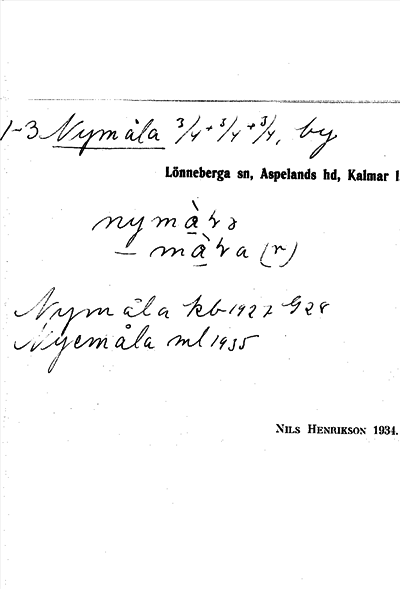 1-3 Nymåla 3/4 + 3/4 + 3/4, by
Lönneberga sn, Aspelands hd, Kalmar l
nymà̱ɫə
— mà̱ɫa (r)
Nymåla kb 1927 G28
Nyemåla ml 1935
NILS HENRIKSON 1934.